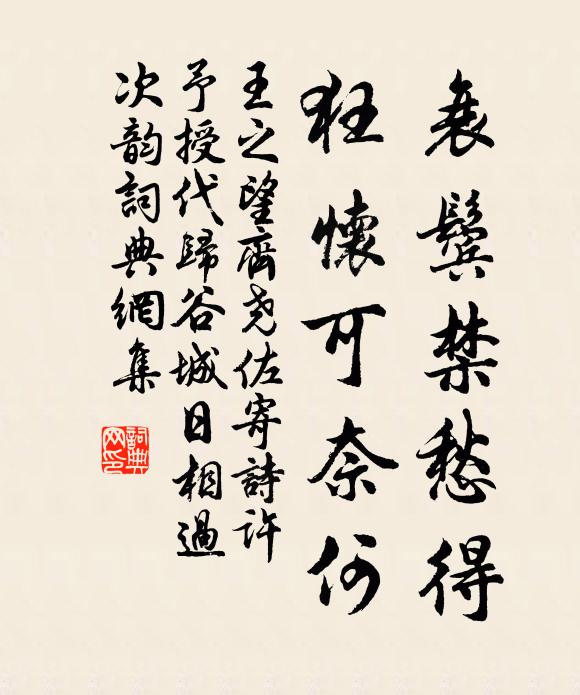 衰鬓禁愁得
狂懷可奈何
王之望齊尧佐寄詩許
予授代歸谷城日相過
次韵詞典網集
詞典网印